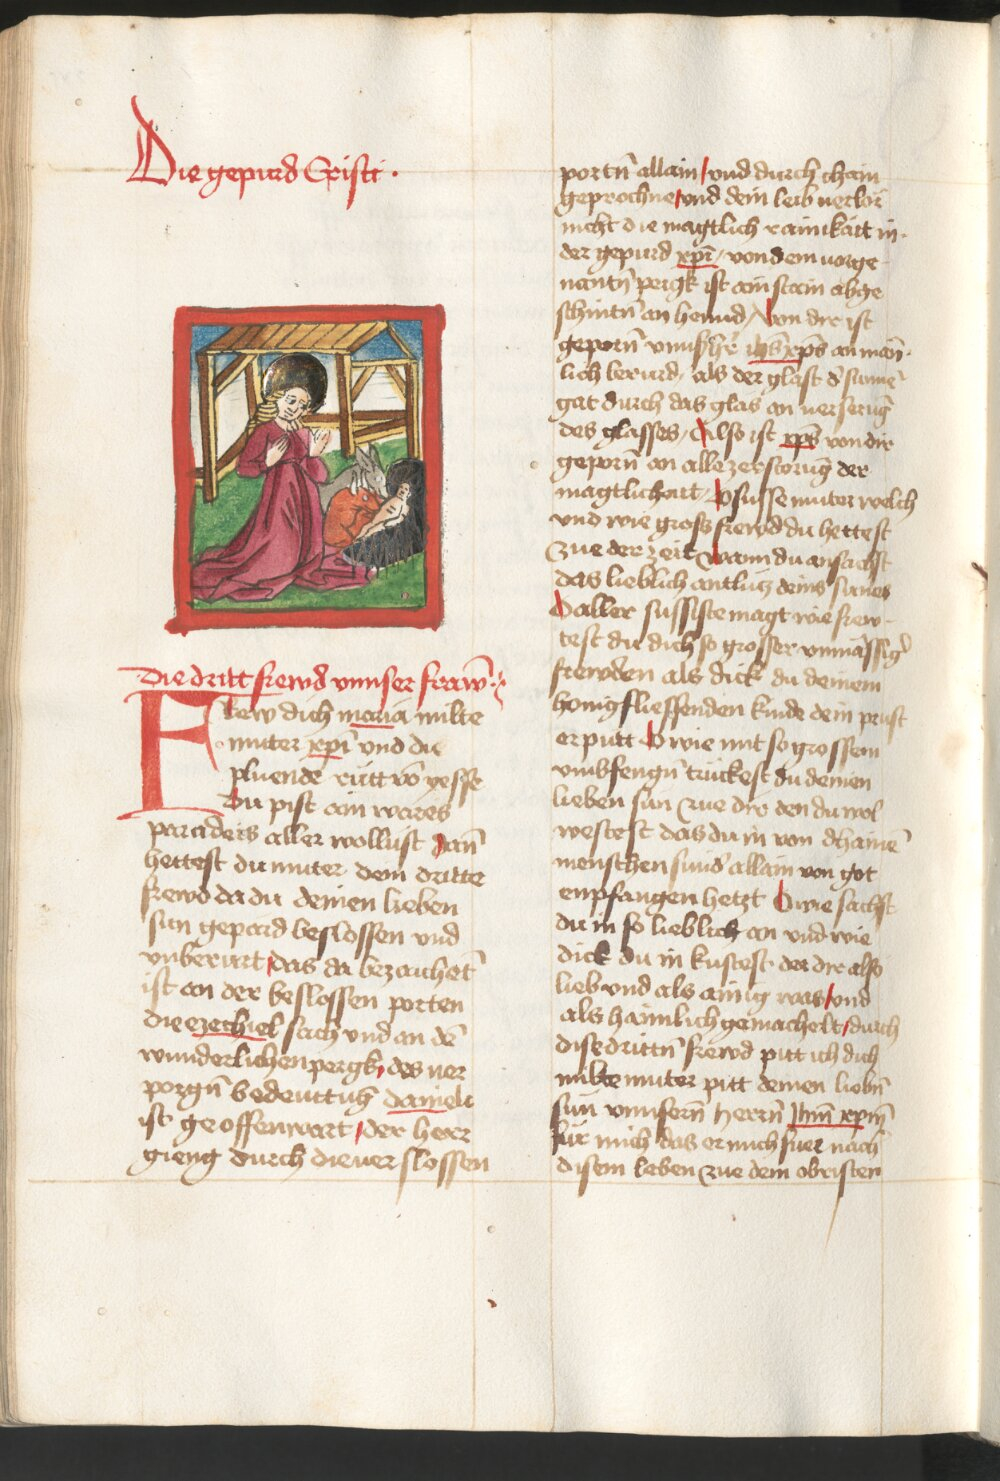 Die gepurd Cristi ·
Die dritt frewd vnnser fraẅn̄ ·:·
Frew dich maria milte
muter xpī vnd die
pluende rutt vō yesse
Du pist ain wares
paradeis aller wollust Dan̄
hettest du muter dein dritte
frewd da du deinen lieben
sun gepard beslossen vnd
vnberurt / das da bezaichet̄
ist an der beslossen porten
die ezechiel sach vnd an dē
wunderlichen pergk / das ver
porgn̄ bedeuttūg danieli
ist geoffenwart / der herr
gieng durch die verslossen
portn̄ allain / vnd durch chain
geprochne / vnd dein leib verlōr
nicht die magtlich rainikait in
der gepurd xpī / von dem vorge
nantn̄ pergk ist ain stain abge
schnitn̄ an hennd / Von dir ist
geporn̄ vnnser h̄r ih̄s xp̄s an män
lich berurd / als der glast d̄ sunne
gat durch das glas an verserūg
des glasses / Also ist xp̄s von dir
geporn̄ an alle zerstorūg der
magtlichait / O susse muter welch
vnd wie gross frewd du hettest
zue der zeit wann du ansachst
das lieblich antlutz deins sunes
O aller sussiste magt wie frew
test du dich so grosser vnmässiḡ
frewden als dick du deinem
honigfliessenden kinde dein prust
erputt O wie mit so grossem
vmbfengn̄ truckest du deinen
lieben sun zue dir den du wol
westest das du in von chainē
menschen sund̄ allain von got
enpfangen hetzt O wie sachst
du in so lieblich an vnd wie
dick du in kustest der dir also
lieb vnd als ainig was / vnd
als haimlich gemachelt / durch
dise drittn̄ frewd pitt ich dich
milte muter pitt deinen liebn̄
sun vnnsern̄ herrn̄ Ihm̄ xpm̄
für mich das er mich fuer nach
disem leben zue dem obristen